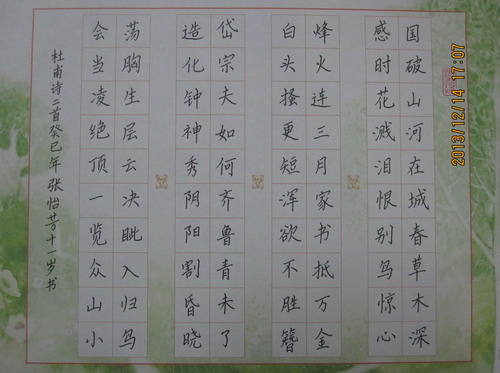 国破山河在城春草木深
感时花溅泪恨别鸟惊心
烽火连三月家书抵万金
白头搔更短浑欲不胜簪
岱宗夫如何齐鲁青未了
造化钟神秀阴阳割昏晓
荡胸生层云决眦入归鸟
会当凌绝顶一览众山小
杜甫诗二首癸巳年张怡芳十一岁书
2013/12/14 17:07